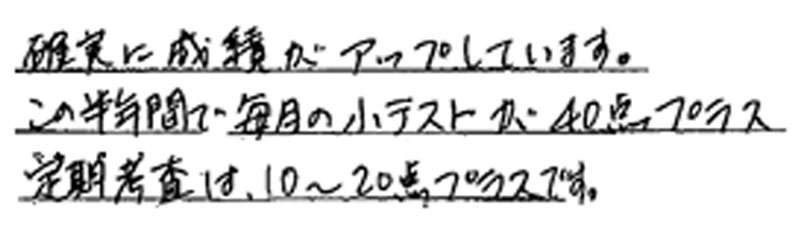 確実に成績がアップしています。
この半年間で毎月の小テストが40点プラス
定期考査は、10～20点プラスです。